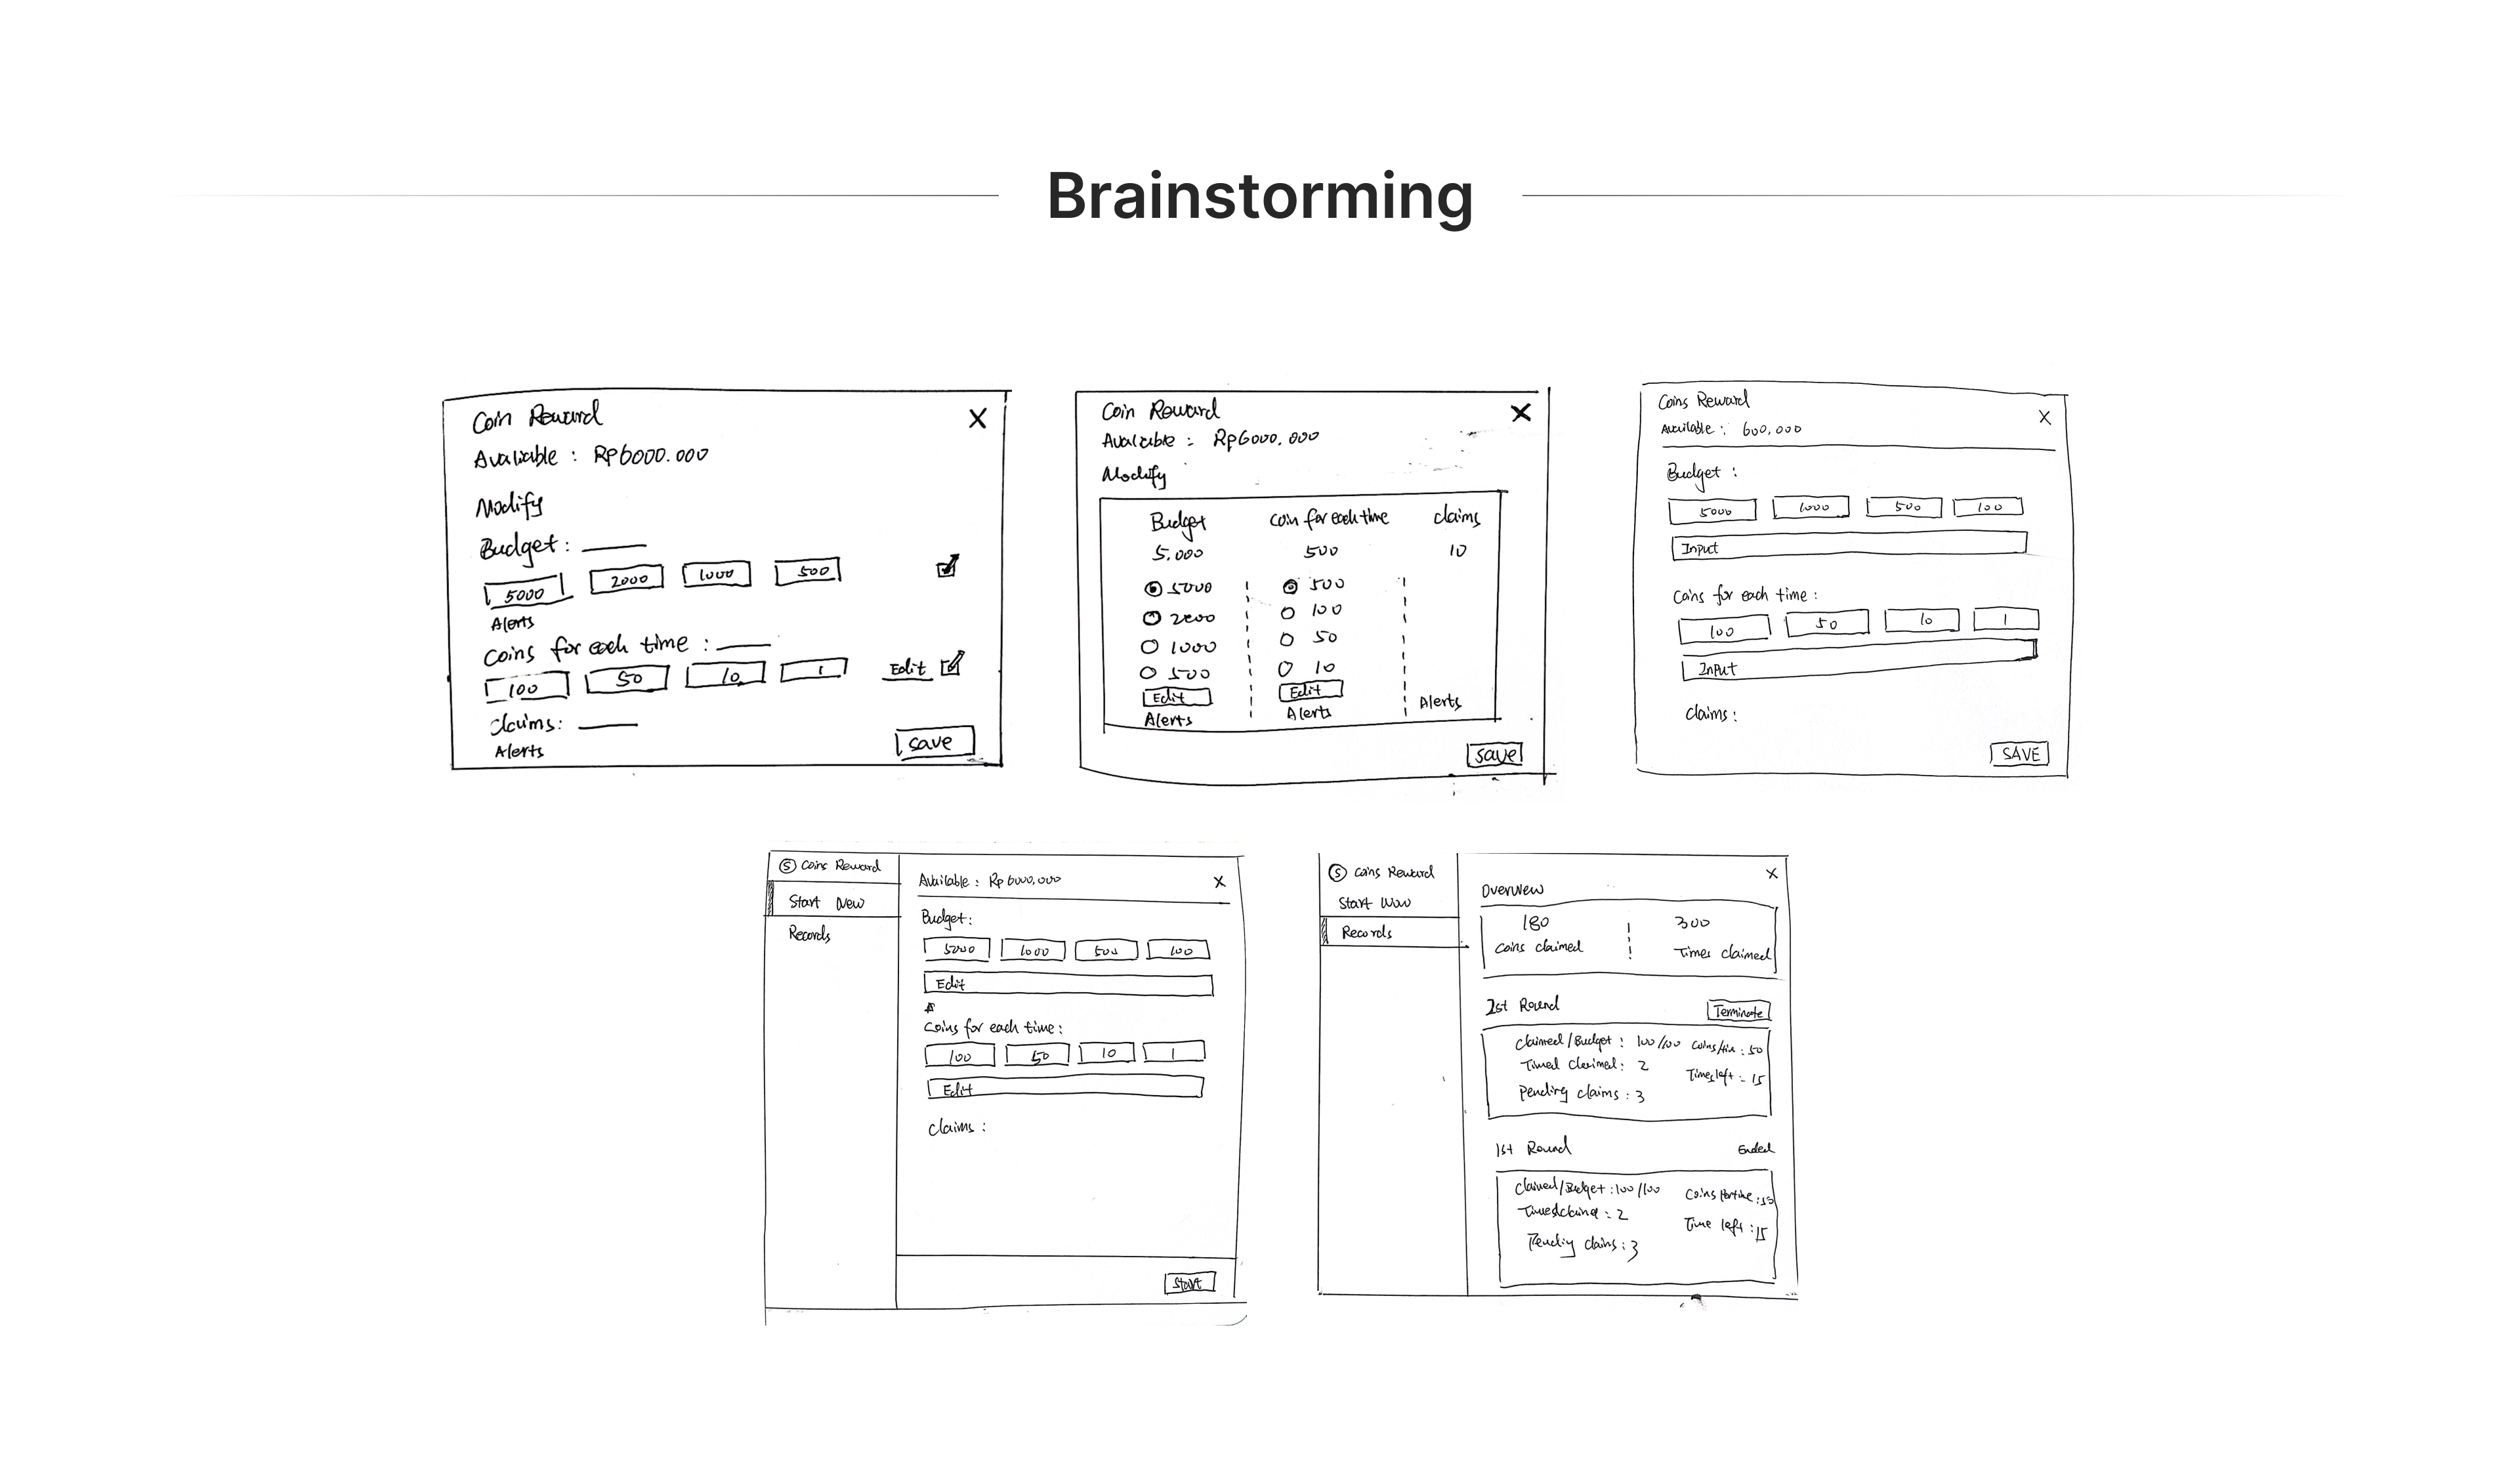 Brainstorming
Coin Reward X
Avaliable : Rp6000.000
Modify
Budget :
5000 2000 1000 500
Alerts
Coins for each time :
100 50 10 1 Edit
Claims:
Alerts
save
Coin Reward X
Avaliable : Rp6000.000
Modify
Budget coin for each time claims
5.000 500 10
5000 500
2000 100
1000 50
500 10
Edit Edit
Alerts Alerts Alerts
save
Coins Reward X
Available : 600,000
Budget :
5000 1000 500 100
Input
Coins for each time :
100 50 10 1
Input
Claims :
SAVE
S Coins Reward
Start New
Records
Available : Rp 6000,000 X
Budget :
5000 1000 500 100
Edit
Coins for each time :
100 50 10 1
Edit
Claims :
Start
S Coins Reward
Start
Records
X
Overview
180 300
Coins claimed Times claimed
Round Terminate
Claimed/Budget : 100/100 : 50
Timed claimed : 2 Times left : 15
Pending claims : 3
1st Round Ended
Claimed/Budget : 100/100
: 2 Time left : 15
claims : 3